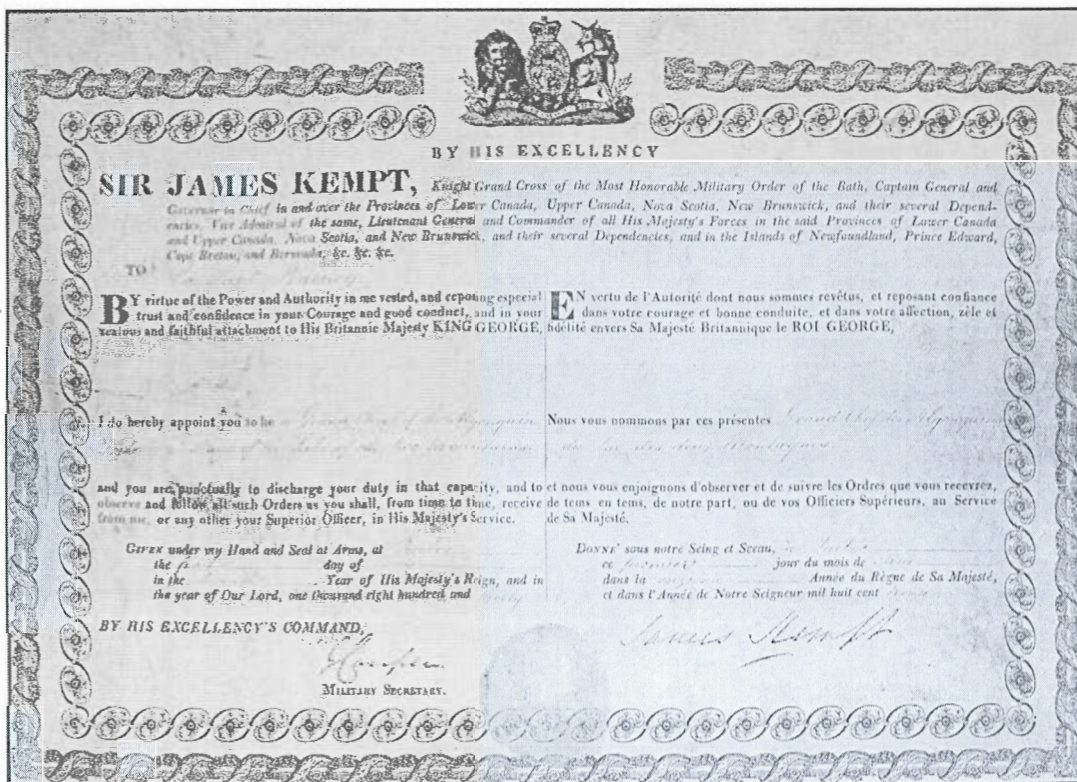 BY HIS EXCELLENCY
SIR JAMES KEMPT, Knight Grand Cross of the Most Honorable Military Order of the Bath, Captain General and
Governor in Chief in and over the Provinces of Lower Canada, Upper Canada, Nova Scotia, New Brunswick, and their several Depend-
encies, Vice Admiral of the same, Lieutenant General and Commander of all His Majesty's Forces in the said Provinces of Lower Canada
and Upper Canada, Nova Scotia, and New Brunswick, and their several Dependencies, and in the Islands of Newfoundland, Prince Edward,
Cape Breton, and Bermuda, &c. &c. &c.
TO
BY virtue of the Power and Authority in me vested, and reposing especial
trust and confidence in your Courage and good conduct, and in your
zealous and faithful attachment to His Britannic Majesty KING GEORGE,
I do hereby appoint you to be a Grand Chief of the Algonquin
and you are punctually to discharge your duty in that capacity, and to
observe and follow all such Orders as you shall, from time to time, receive
from me, or any other your Superior Officer, in His Majesty's Service.
GIVEN under my Hand and Seal at Arms, at
the day of
in the Year of His Majesty's Reign, and in
the year of Our Lord, one thousand eight hundred and
BY HIS EXCELLENCY'S COMMAND,
MILITARY SECRETARY.
EN vertu de l'Autorité dont nous sommes revêtus, et reposant confiance
dans votre courage et bonne conduite, et dans votre affection, zèle et
fidélité envers Sa Majesté Britannique le ROI GEORGE,
Nous vous nommons par ces présentes Grand Chef des Algonquins
du lac des deux Montagnes
et nous vous enjoignons d'observer et de suivre les Ordres que vous recevrez,
de tems en tems, de notre part, ou de vos Officiers Supérieurs, au Service
de Sa Majesté.
DONNE' sous notre Seing et Sceau,
ce premier jour du mois de
dans la Année du Règne de Sa Majesté,
et dans l'Année de Notre Seigneur mil huit cent
James Kempt